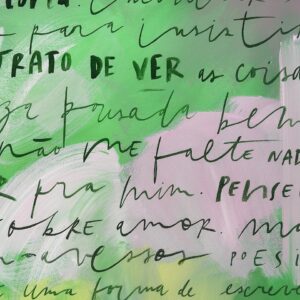 para insistir
TRATO DE VER as coisas
pousada bem
não me falte NADA
pra mim. PENSEI
SOBRE amor. mas
-avessos POESI
uma forma de escrever